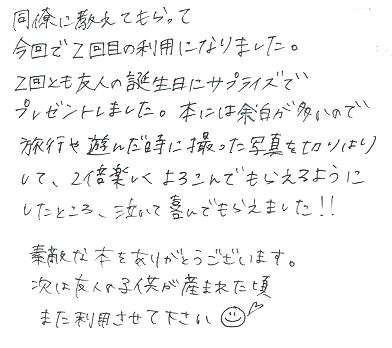 同僚に教えてもらって
今回で2回目の利用になりました。
2回とも友人の誕生日にサプライズで
プレゼントしました。本には余白が多いので
旅行や遊んだ時に撮った写真を切りはり
して、2倍楽しくよろこんでもらえるように
したところ、泣いて喜んでもらえました!!
素敵な本をありがとうございます。
次は友人の子供が産まれた頃
また利用させて下さい